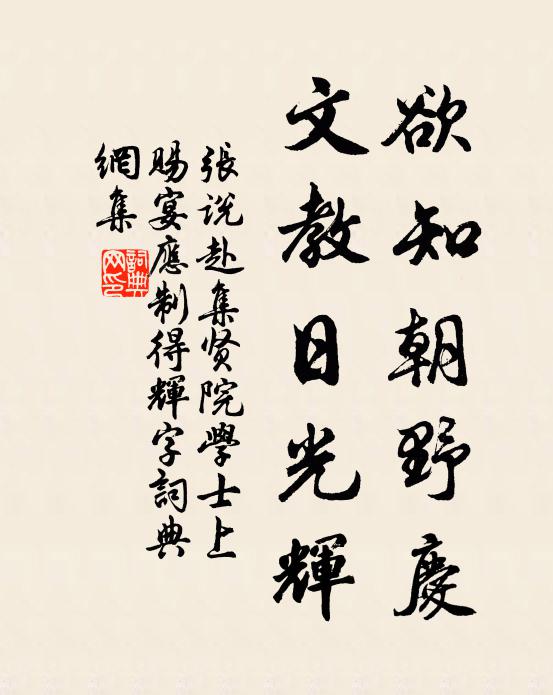 欲知朝野慶
文教日光輝
張説赴集贤院學士上
賜宴應制得輝字詞典
網集
詞典網印